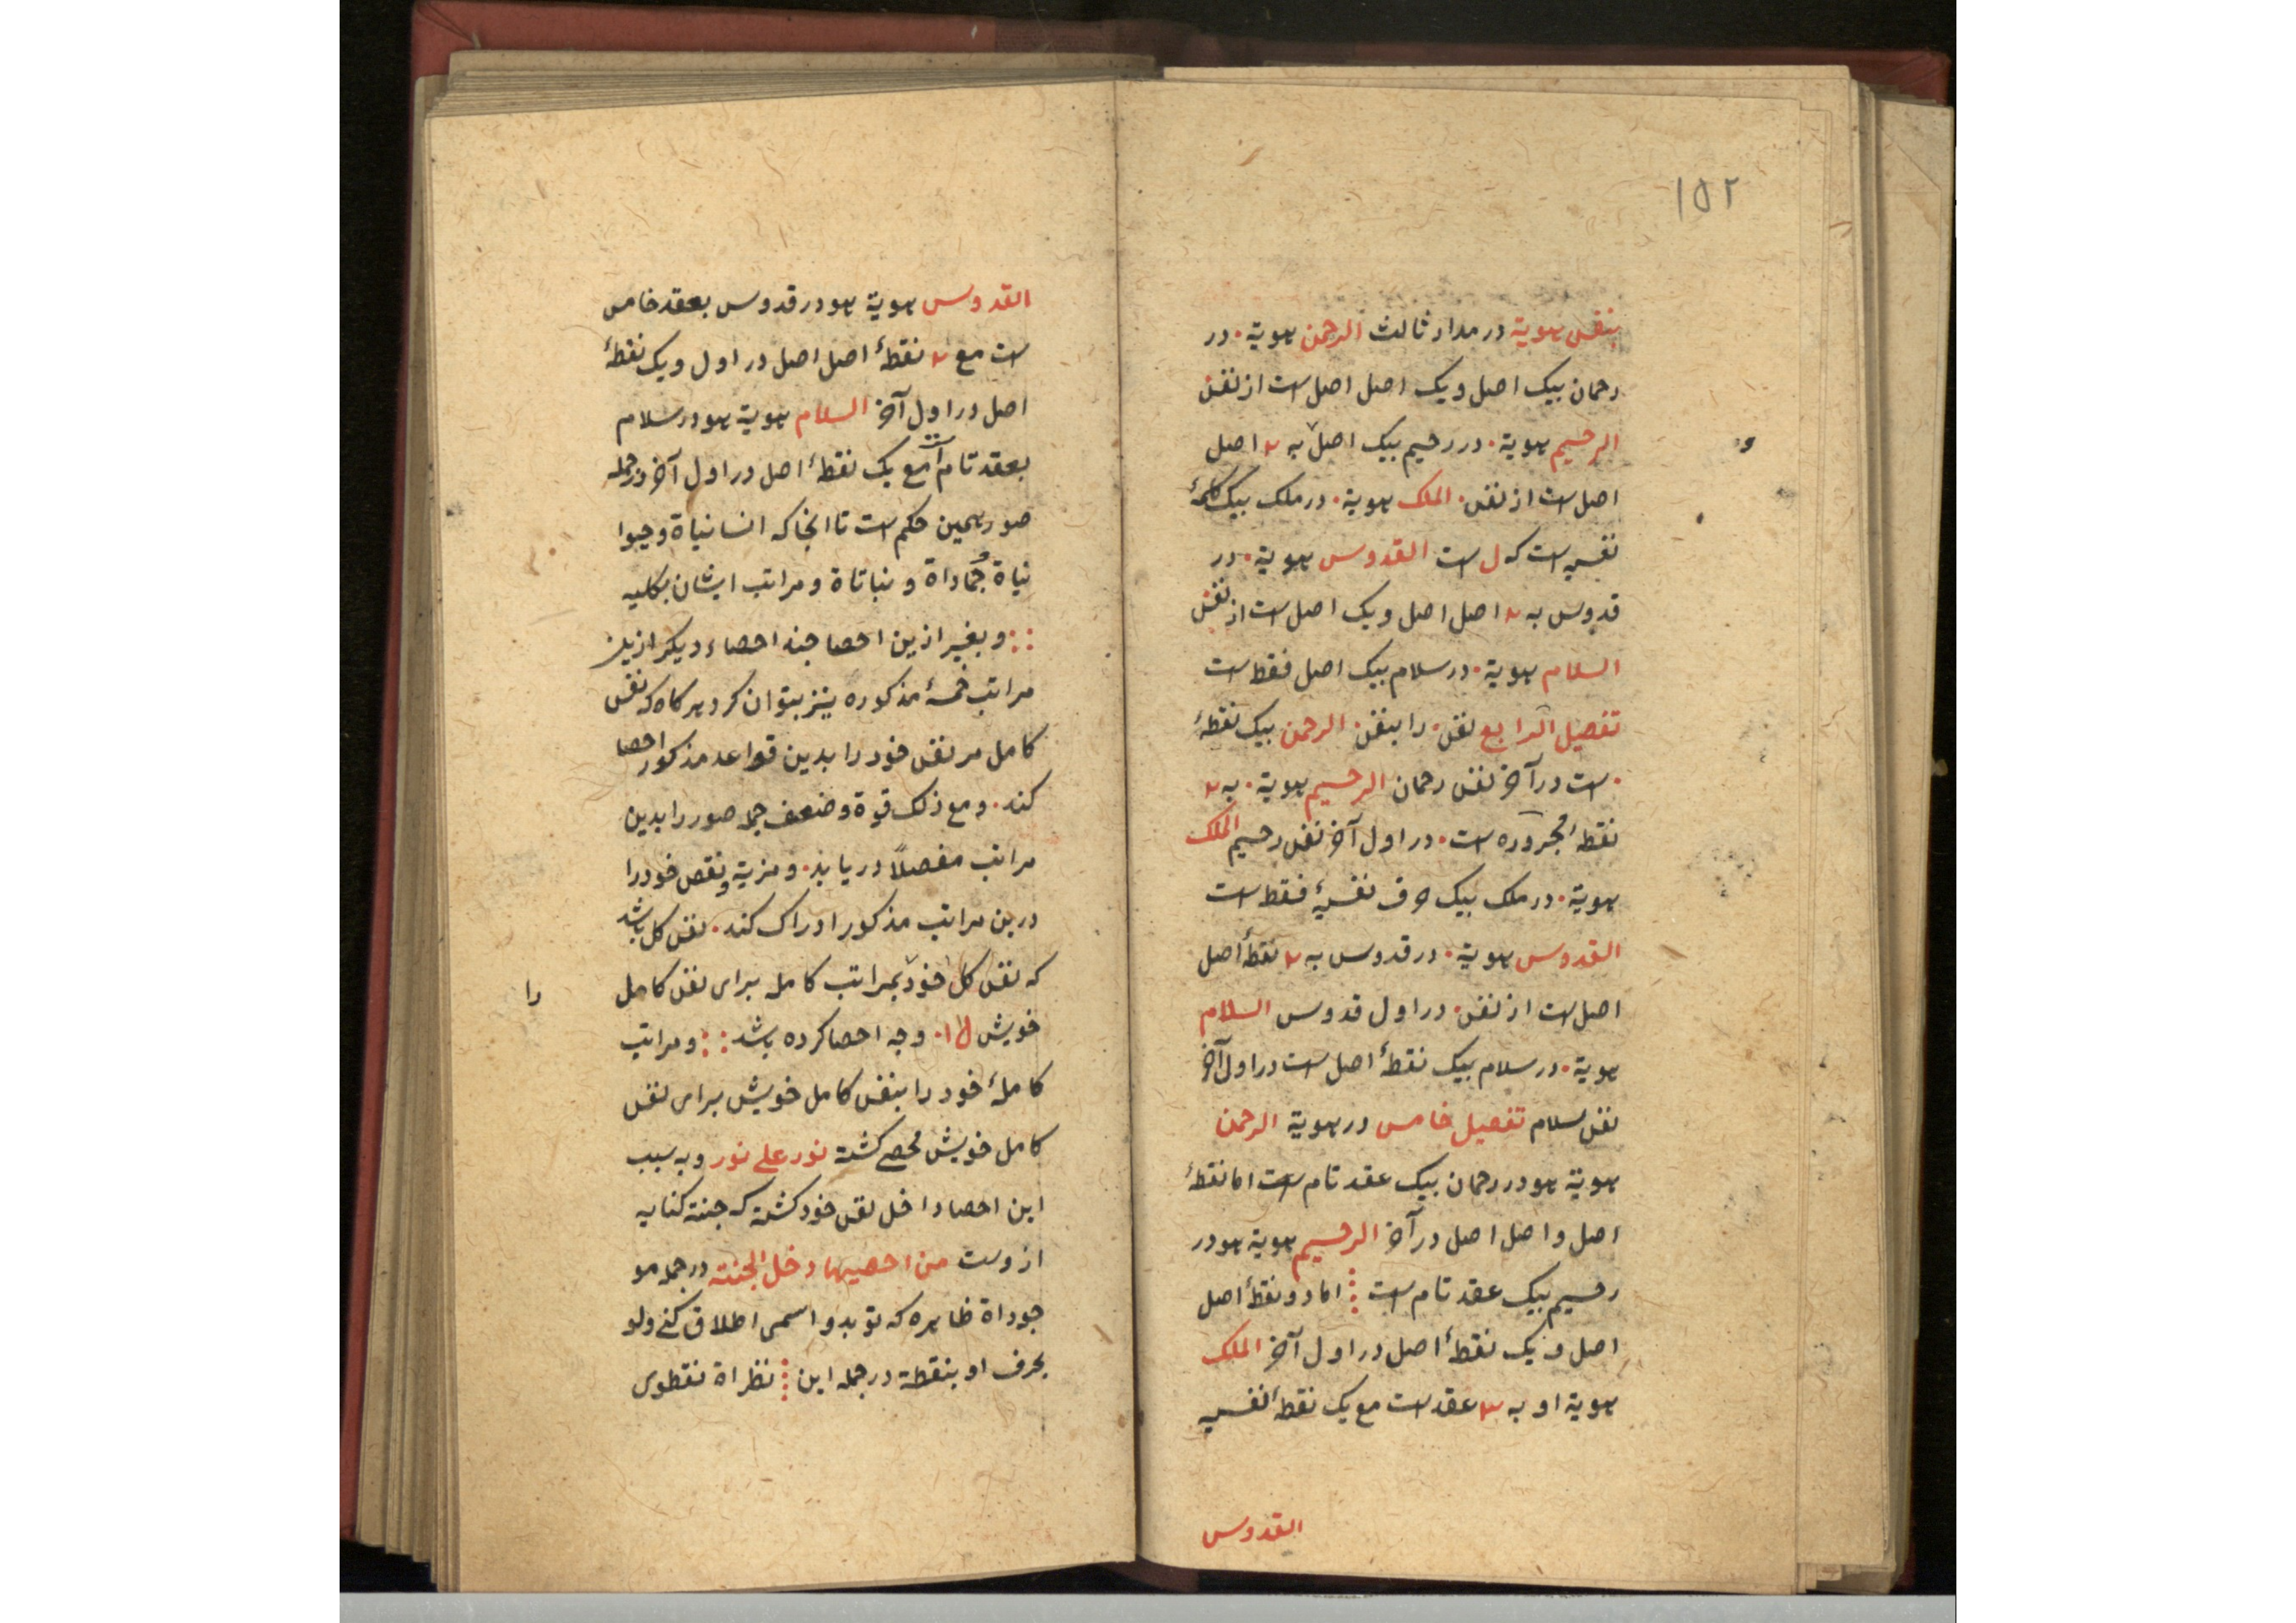 ۱۵۲
بنفس هویة در مدار ثالث الرحمن هویة۰ در
رحمان بیک اصل و یک اصل اصل است از نفس
الرحیم هویة۰ در رحیم بیک اصل به ۲ اصل
و
اصل است از نفس۰ الملک هویة۰ در ملک بیک کلمهٔ
نفسیه است که ل است القدوس هویة۰ در
قدوس به ۲ اصل اصل و یک اصل است از نفس
السلام هویة۰ در سلام بیک اصل فقط است
تفصیل الرابع نفس۰ را بنفس۰ الرحمن بیک نقطهٔ
۰ است در آخر نفس رحمان الرحیم هویة۰ به ۲
نقطهٔ مجروره است۰ در اول آخر نفس رحیم الملک
هویة۰ در ملک بیک حرف نفسیهٔ فقط است
القدوس هویة۰ در قدوس به ۲ نقطهٔ اصل
اصل است از نفس۰ در اول قدوس السلام
هویة۰ در سلام بیک نقطهٔ اصل است در اول آخر
نفس سلام تفصیل خامس در هویة الرحمن
هویة هو در رحمان بیک عقد تام است اما نقطهٔ
اصل و اصل اصل در آخر الرحیم هویة هو در
رحیم بیک عقد تام است اما دو نقطهٔ اصل
اصل و یک نقطهٔ اصل در اول آخر الملک
هویة او به ۳ عقد است مع یک نقطهٔ نفسیه
القدوس
القدوس هویة هو در قدوس بعقد خامس
است مع ۲ نقطهٔ اصل اصل در اول و یک نقطهٔ
اصل در اول آخر السلام هویة هو در سلام
بعقد تام است مع یک نقطهٔ اصل در اول آخر و در جمله
صور همین حکم است تا انجا که انسانیاة و حیوا
نیاة و جماداة و نباتاة و مراتب ایشان بکلیه
و بغیر ازین احصا چند احصاء دیکر ازین
مراتب خمسهٔ مذکوره نیز بتوان کرد هر کاه که نفس
کامل مر نفس خود را بدین قواعد مذکور احصا
کند۰ و مع ذلک قوة و ضعف جمله صور را بدین
مراتب مفصلاً دریابد۰ و مزیة و نقص خود را
درین مراتب مذکور ادراک کند۰ نفس کل باشد
که نفس کل خود بمراتب کامله برای نفس کامل
را
خویش وجه احصا کرده باشد و مراتب
کاملهٔ خود را بنفس کامل خویش برای نفس
کامل خویش محصے کشته نور علی نور و به سبب
این احصا داخل نفس خود کشته که جنة کنایه
از وست من احصیها دخل الجنة در جمله مو
جوداة ظاهره که تو بدو اسمی اطلاق کنے ولو
بحرف او بنقطة در جمله این نظراة نقطوی